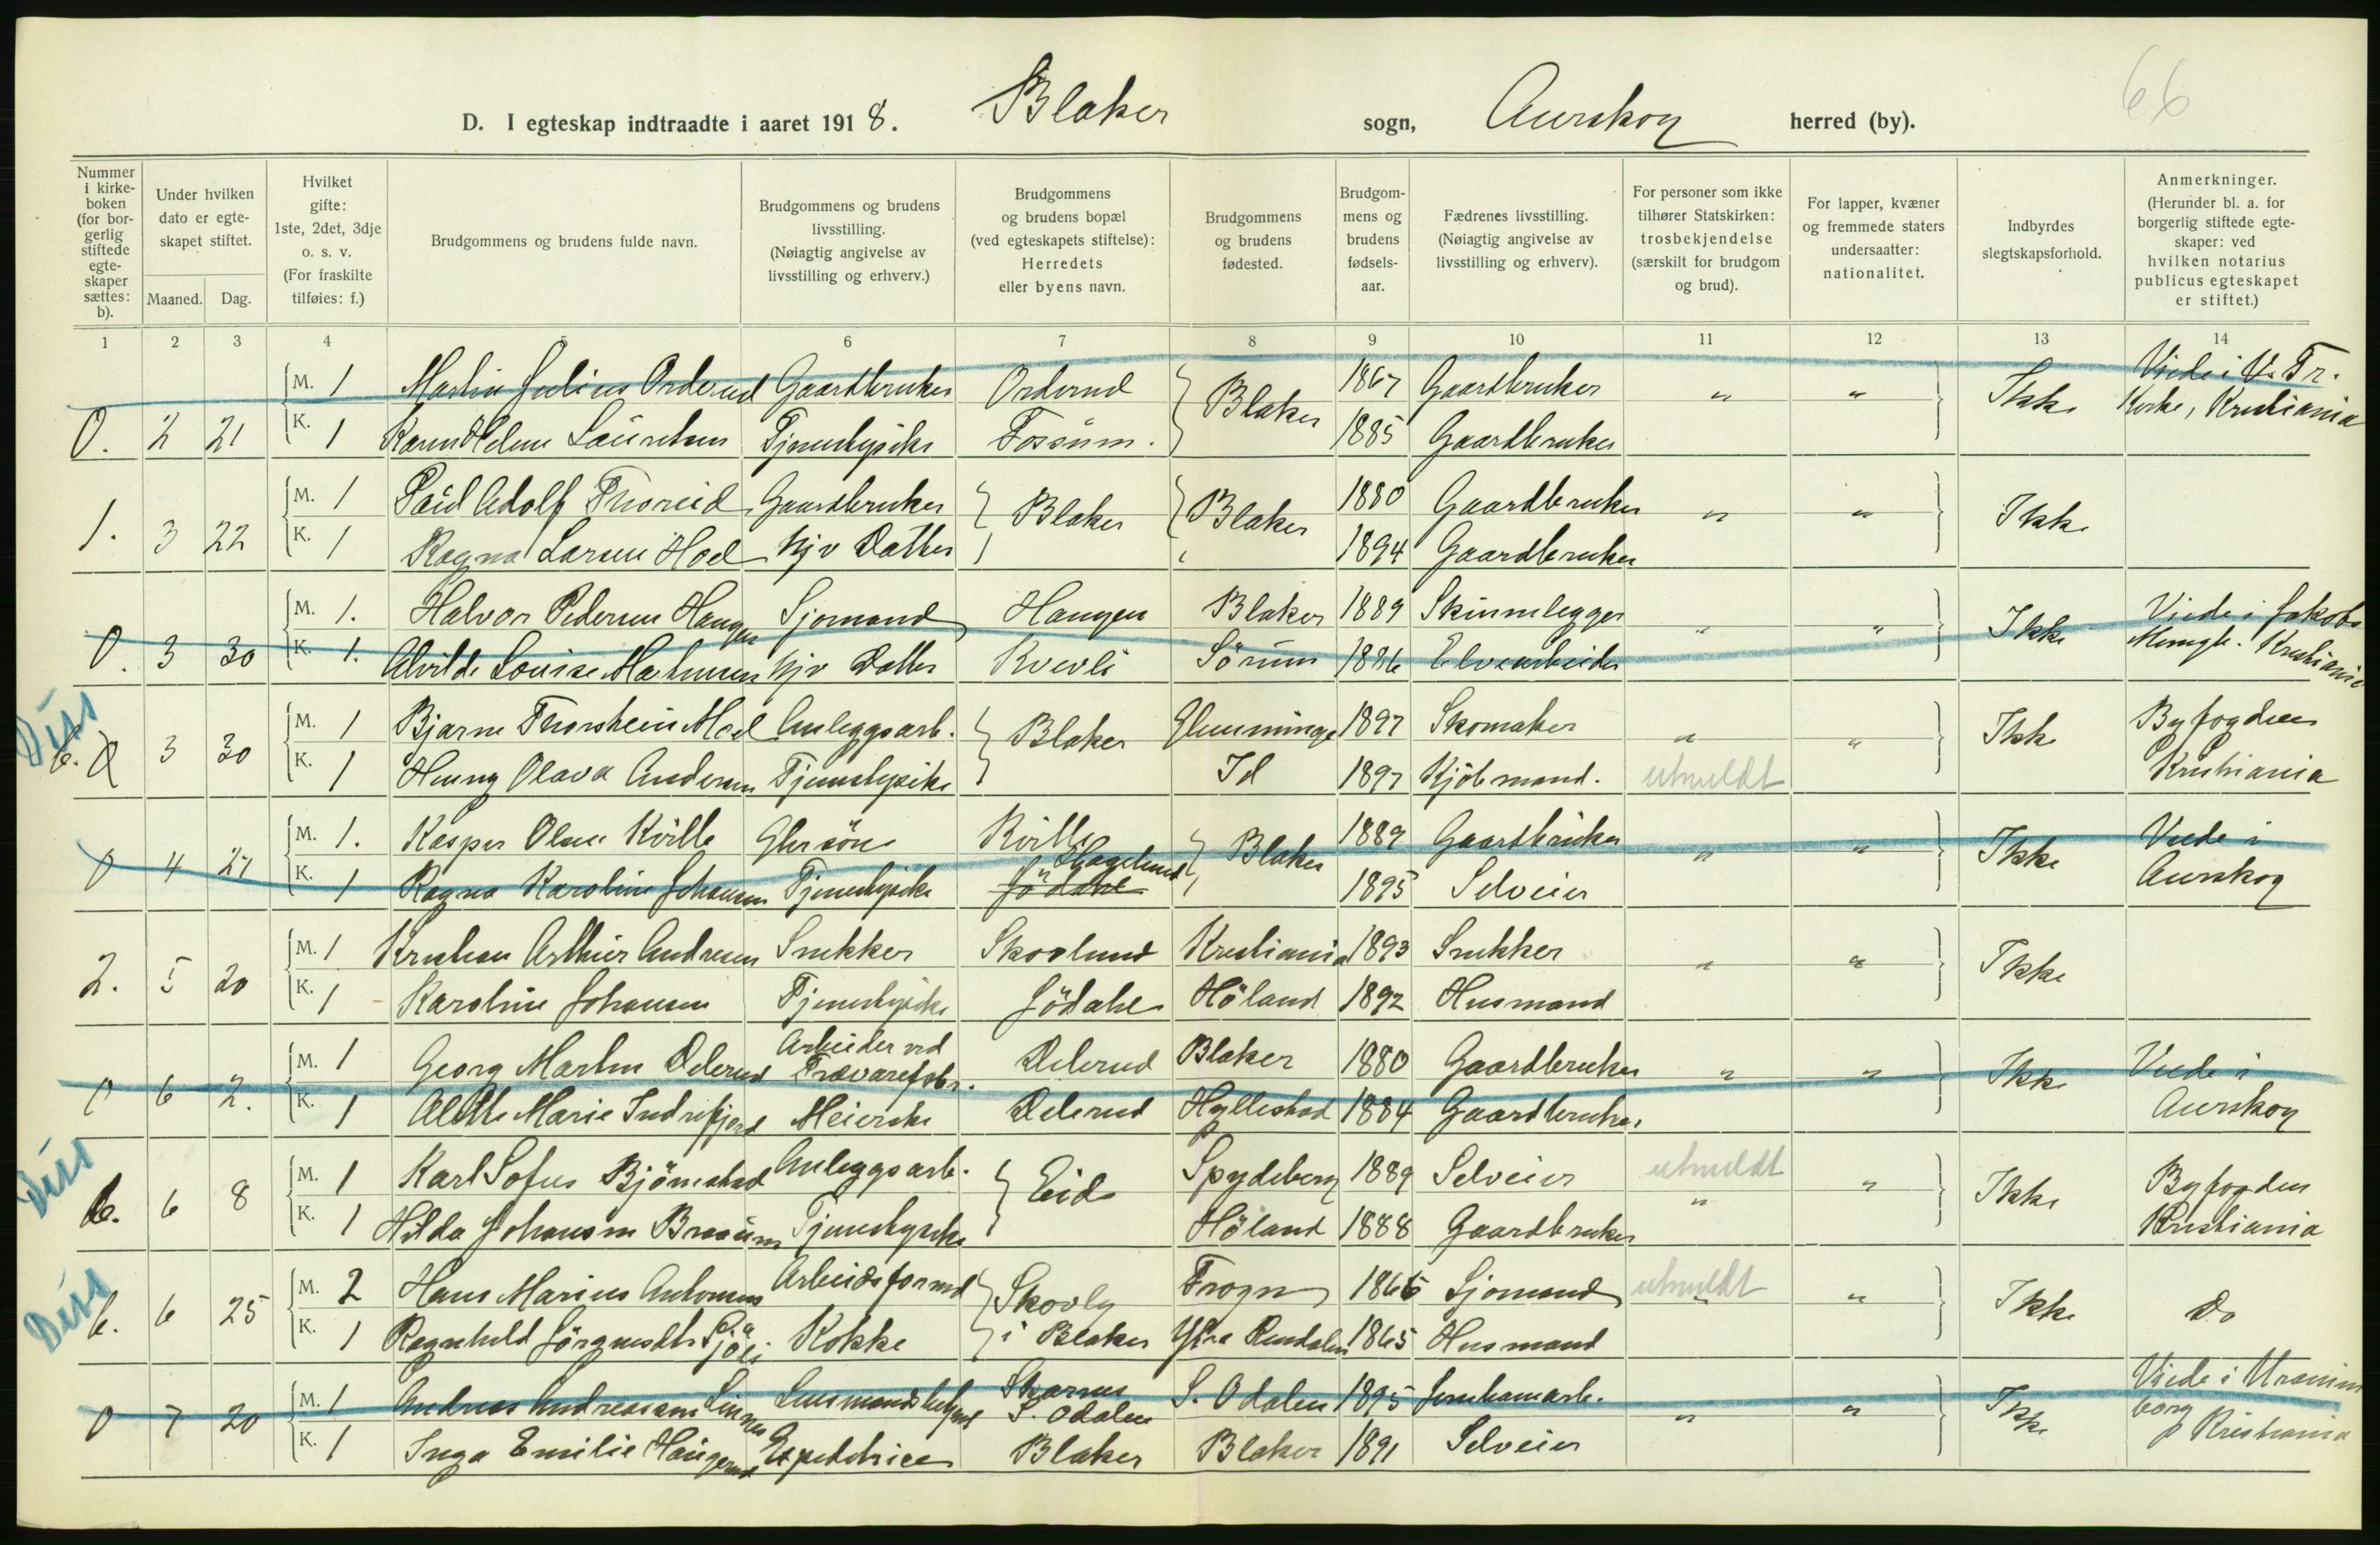 66
D. I egteskap indtraadte i aaret 1918. Blaker sogn, Aurskog herred (by).
Nummer i kirkeboken (for borgerlig stiftede egteskaper sættes: b).
Under hvilken dato er egteskapet stiftet.
Maaned. Dag.
Hvilket gifte: 1ste, 2det, 3dje o. s. v. (For fraskilte tilføies: f.)
Brudgommens og brudens fulde navn.
Brudgommens og brudens livsstilling. (Nøiagtig angivelse av livsstilling og erhverv.)
Brudgommens og brudens bopæl (ved egteskapets stiftelse): Herredets eller byens navn.
Brudgommens og brudens fødested.
Brudgommens og brudens fødselsaar.
Fædrenes livsstilling. (Nøiagtig angivelse av livsstilling og erhverv).
For personer som ikke tilhører Statskirken: trosbekjendelse (særskilt for brudgom og brud).
For lapper, kvæner og fremmede staters undersaatter: nationalitet.
Indbyrdes slegtskapsforhold.
Anmerkninger. (Herunder bl. a. for borgerlig stiftede egteskaper: ved hvilken notarius publicus egteskapet er stiftet.)
1 2 3 4 5 6 7 8 9 10 11 12 13 14
M. 1 Martin Julius Orderud Gaardbruker Orderud Blaker 1867 Gaardbruker " " Ikke Viede i V. Fr.
0. 2 21 K. 1 Karen Helene Lauretsen Tjenestepike Fossum. 1885 Gaardbruker Kirke, Kristiania
M. 1 Paul Adolf Thoreid Gaardbruker Blaker Blaker 1880 Gaardbruker " " Ikke
1. 3 22 K. 1 Ragna Larsen Hoel Hjv Datter 1894 Gaardbruker
M. 1. Halvor Pedersen Haugen Sjomand Haugen Blaker 1889 Skinnlegger " " Ikke Viede i Jakobs
0. 3 30 K. 1. Alvilde Louise Mathiesen Hjv Datter Kvevli Sörum 1886 Elvearbeider Kristiania
Diss
M. 1 Bjarne Thorstein Moel Anleggsarb. Blaker Glemminge 1897 Skomaker " " Ikke Byfogden
b. 3 30 K. 1 Henny Olava Andersen Tjenestepike Id 1897 Kjöbmand. utmeldt Kristiania
M. 1. Kasper Olsen Kville Gbr sön Kville Blaker 1889 Gaardbruker " " Ikke Viede i
0 4 27 K. 1 Ragna Karoline Johansen Tjenestepike Jödahl Hagelund 1895 Selveier Aurskog
M. 1 Kristian Arthur Andresen Snekker Skovlund Kristiania 1893 Snekker " " Ikke
2. 5 20 K. 1 Karoline Johansen Tjenestepike Jödahl Höland 1892 Husmand
M. 1 Georg Martin Delerud Arbeider ved Trævarefabr. Delerud Blaker 1880 Gaardbruker " " Ikke Viede i
0 6 2. K. 1 Alette Marie Indrefjord Meierske Delerud Hyllestad 1884 Gaardbruker Aurskog
Diss
M. 1 Karl Sofus Björnstad Anleggsarb. Eid Spydeberg 1889 Selveier utmeldt " Ikke Byfogden
b. 6 8 K. 1 Hilda Johansen Braaum Tjenestepike Höland 1888 Gaardbruker " Kristiania
Diss
M. 2 Hans Marius Antonsen Arbeidsformd Skovly Frogn 1866 Sjomand utmeldt " Ikke Do
b. 6 25 K. 1 Ragnhild Jörgensdtr Sjöli Kokke i Blaker Ytre Rendalen 1865 Husmand
M. 1 Andreas Andreassen Linnes Lensmandsbetjent Skarnes S. Odalen S. Odalen 1895 Jernbanearb. " " Ikke Viede i Uranienborg
0 7 20 K. 1 Inga Emilie Haugerud Expeditrice Blaker Blaker 1891 Selveier Kristiania